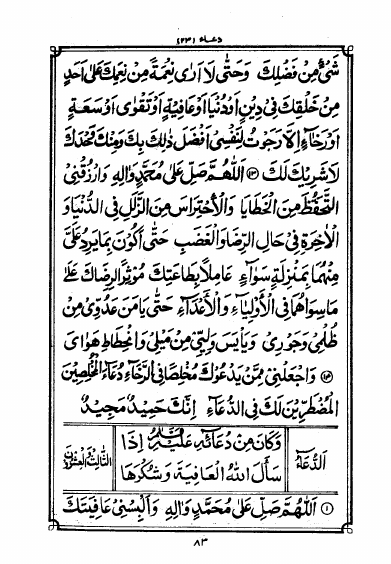 دعاء (٢٣)
شَیْءٌ مِنْ فَضْلِكَ وَحَتّٰی لَا اَرٰی نِعْمَةً مِنْ نِعَمِكَ عَلٰی اَحَدٍ
مِنْ خَلْقِكَ فِیْ دِیْنٍ اَوْ دُنْیَا اَوْ عَافِیَةٍ اَوْ تَقْوٰی اَوْ سَعَةٍ
اَوْ رَخَآءٍ اِلَّا رَجَوْتُ لِنَفْسِیْ اَفْضَلَ ذٰلِكَ بِكَ وَمِنْكَ وَحْدَكَ
لَا شَرِیْكَ لَكَ ⑬ اَللّٰهُمَّ صَلِّ عَلٰی مُحَمَّدٍ وَّاٰلِهٖ وَارْزُقْنِیْ
التَّحَفُّظَ مِنَ الْخَطَایَا وَالْاِحْتِرَاسَ مِنَ الزَّلَلِ فِی الدُّنْیَا وَ
الْاٰخِرَةِ فِیْ حَالِ الرِّضَا وَالْغَضَبِ حَتّٰی اَكُوْنَ بِمَا یَرِدُ عَلَیَّ
مِنْهُمَا بِمَنْزِلَةٍ سَوَآءٍ عَامِلًا بِطَاعَتِكَ مُوْثِرًا لِرِضَاكَ عَلٰی
مَا سِوَاهُمَا فِی الْاَوْلِیَآءِ وَالْاَعْدَآءِ حَتّٰی یَاْمَنَ عَدُوِّیْ مِنْ
ظُلْمِیْ وَجَوْرِیْ وَیَاْیَسَ وَلِیِّیْ مِنْ مَیْلِیْ وَانْحِطَاطِ هَوَایَ
⑭ وَاجْعَلْنِیْ مِمَّنْ یَدْعُوْكَ مُخْلِصًا فِی الرَّخَآءِ دُعَآءَ الْمُخْلِصِیْنَ
الْمُضْطَرِّیْنَ لَكَ فِی الدُّعَآءِ اِنَّكَ حَمِیْدٌ مَجِیْدٌ
اَلدُّعَآءُ
وَكَانَ مِنْ دُعَآئِهٖ عَلَیْهِ السَّلَامُ اِذَا
سَاَلَ اللّٰهَ الْعَافِیَةَ وَشُكْرَهَا
الثَّالِثُ وَالْعِشْرُوْنَ
① اَللّٰهُمَّ صَلِّ عَلٰی مُحَمَّدٍ وَّاٰلِهٖ وَاَلْبِسْنِیْ عَافِیَتَكَ
٨٣